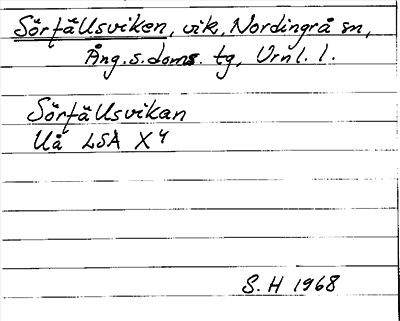 Sörfällsviken, vik, Nordingrå sn,
Ång. s. doms. tg, Vrnl. l.
Sörfällsvikan
Uå LSA X 4
S. H 1968